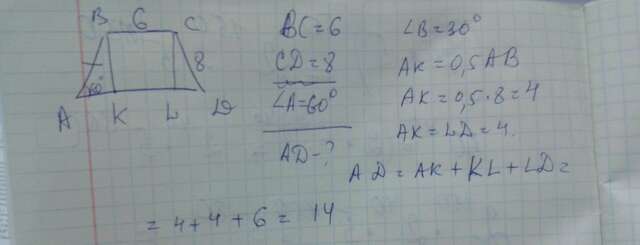 B 6 C
8
60°
A K L D
BC=6
CD=8
∠A=60°
AD-?
∠B=30°
AK=0,5AB
AK=0,5·8=4
AK=LD=4.
AD=AK+KL+LD=
=4+4+6=14